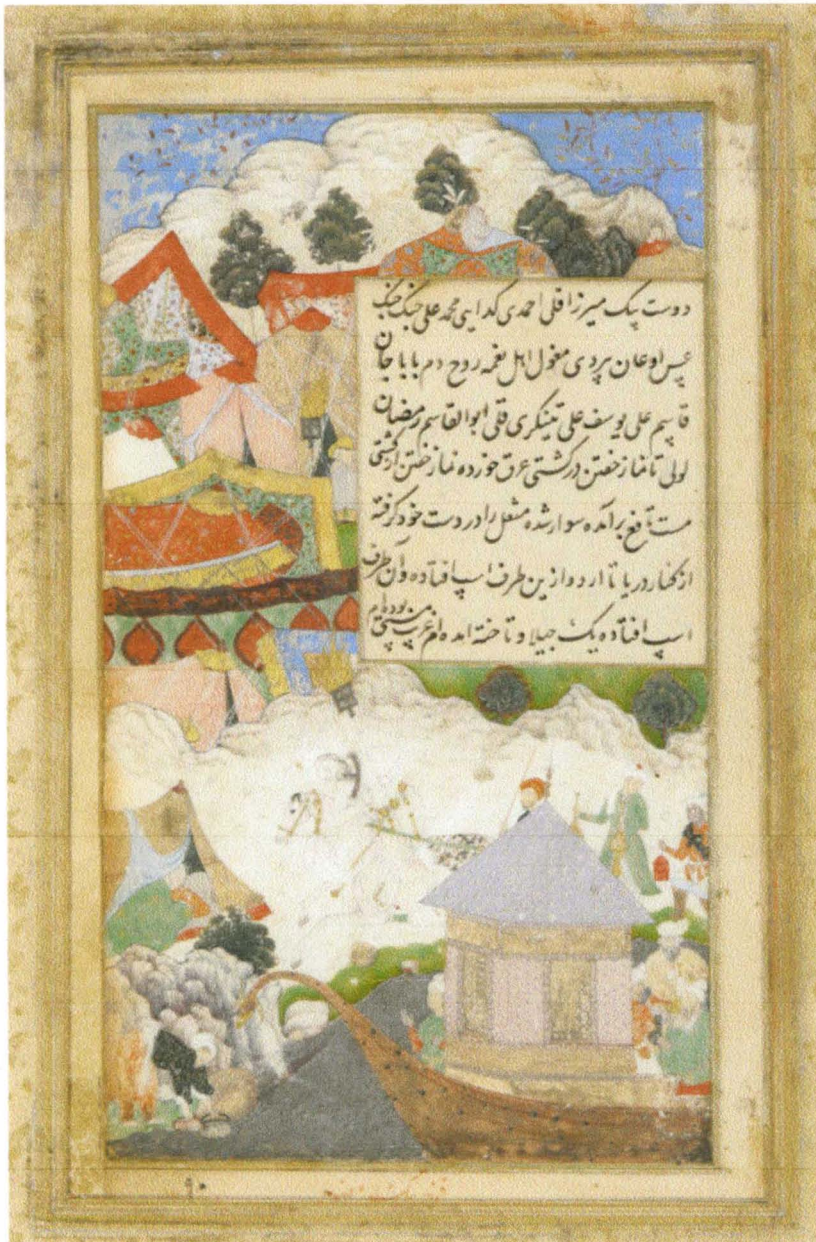 دوست بیک میرزا قلی احمدی کدایی محمد علی جنک جنک
عپس اوغان بردی مغول اهل نغمه روح دم بابا جان
قاپم علی یوسف علی تینکری قلی ابوالقاسم رمضان
لولی تا نماز خفتن در کشتی عرق خورده نماز خفتن از کشتی
مست برآمده سوار شده مشعل را در دست خود گرفته
از کنار دریا تا اردو ازین طرف اسپ افتاده و آن طرف
اسپ افتاده یک جیلا و تاخته امده ام مستی بوده ام
۹۰